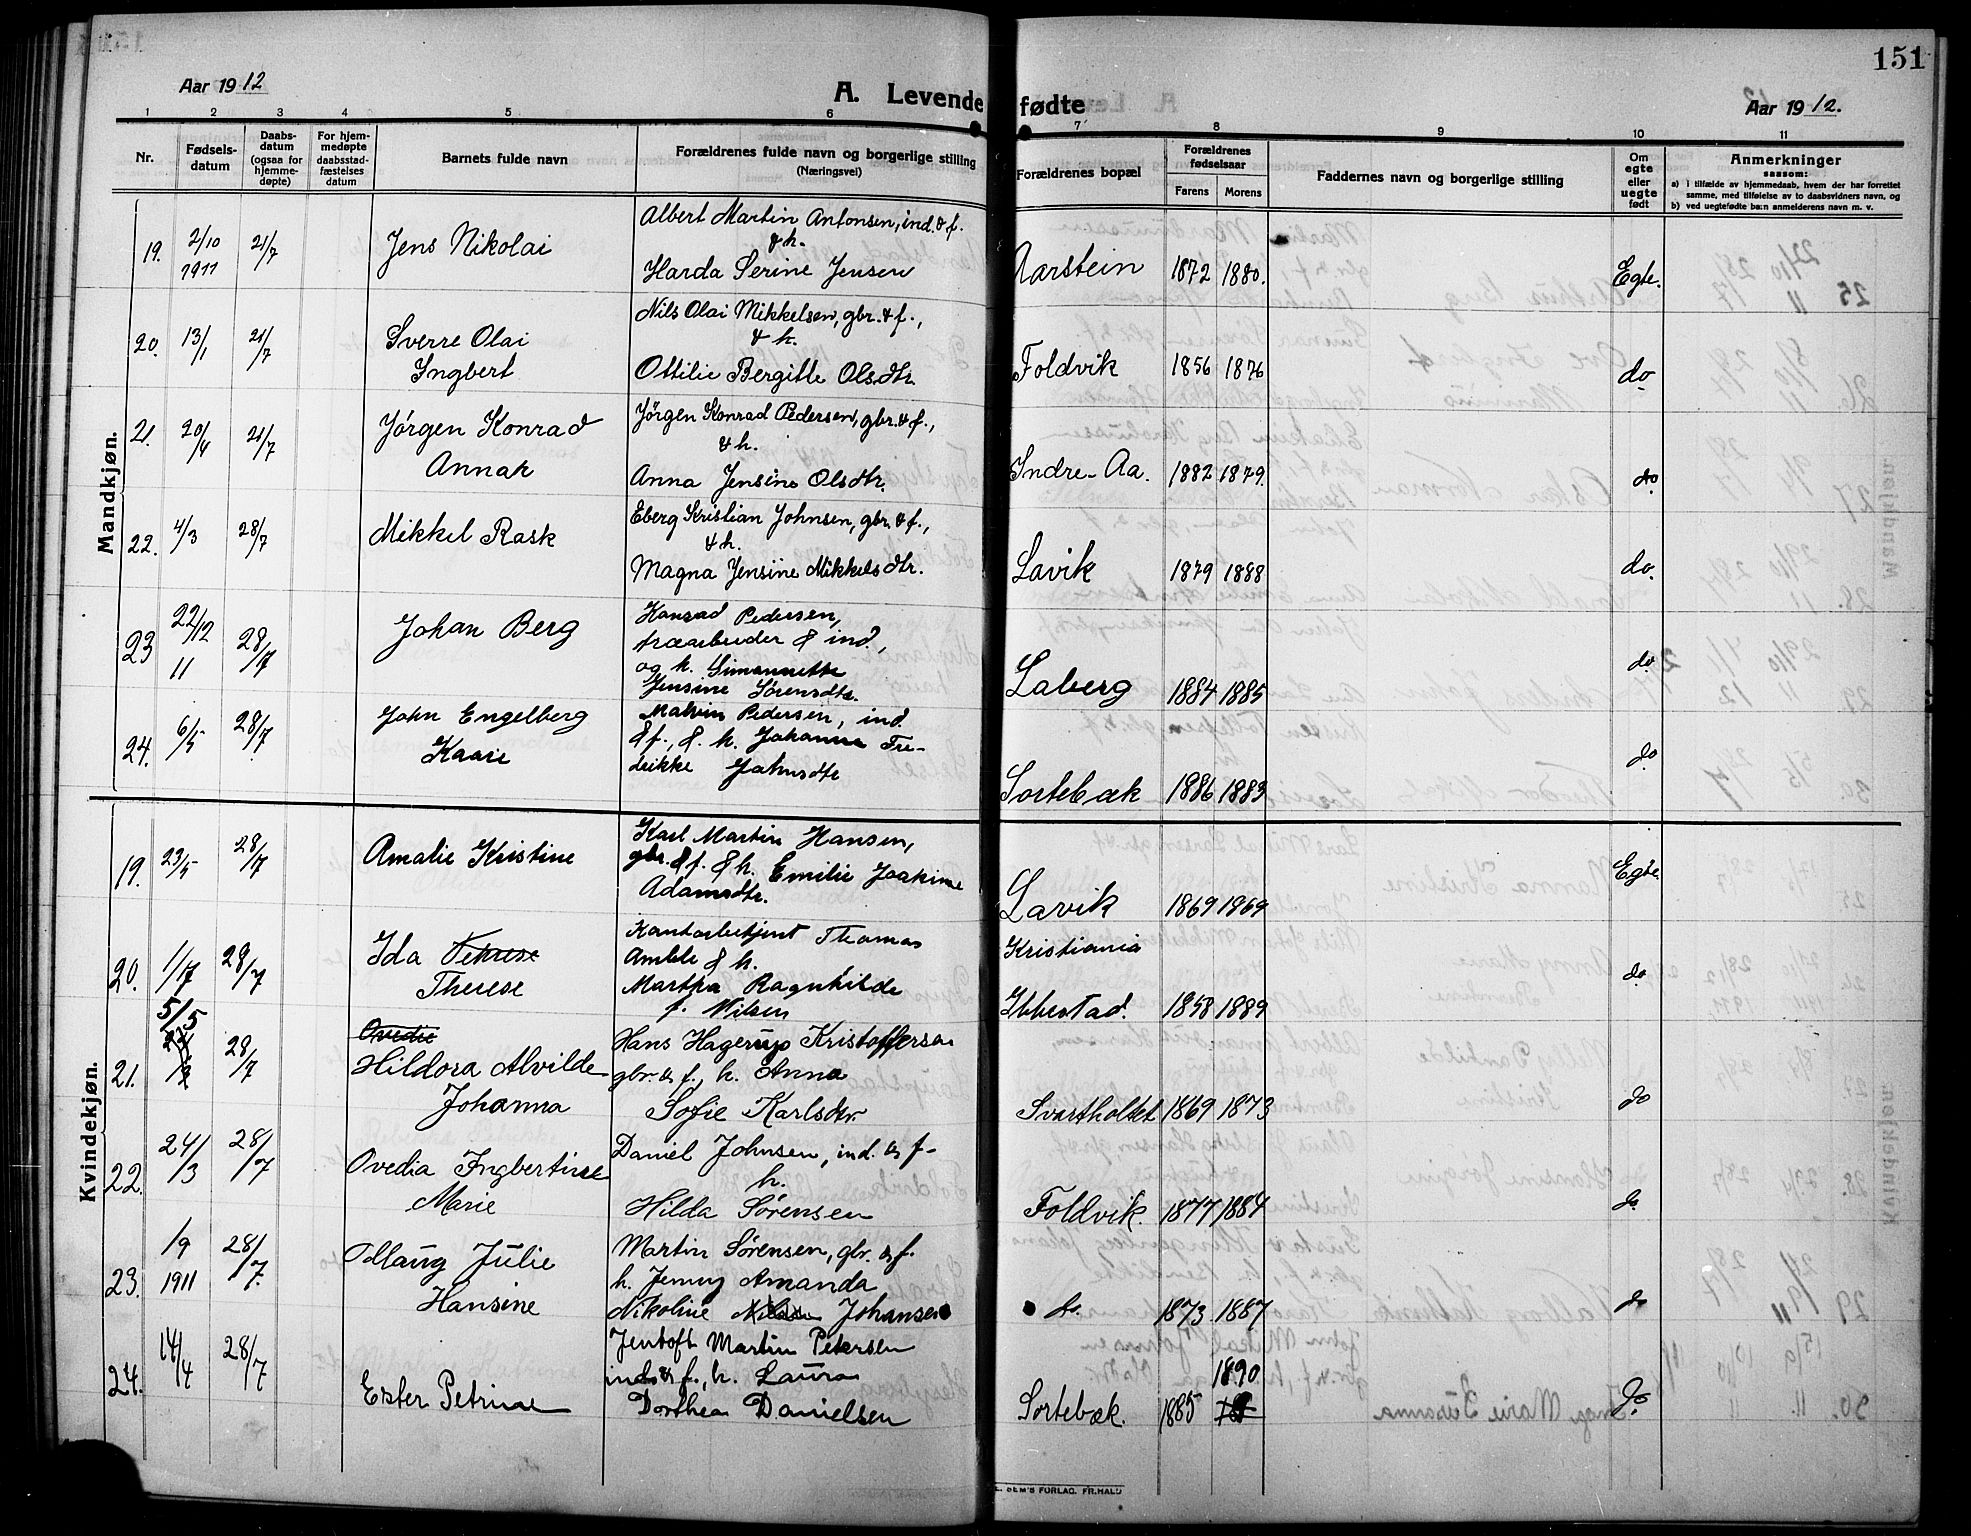 151
Aar 1912
A. Levende fødte
Aar 1912.
1 2 3 4 5 6 7 8 9 10 11
Nr.
Fødsels-
datum
Daabs-
datum
(ogsaa for
hjemme-
døpte)
For hjem-
medøpte
daabsstad-
fæstelses
datum
Barnets fulde navn
Forældrenes fulde navn og borgerlige stilling
(Næringsvei)
Forældrenes bopæl
Forældrenes
fødselsaar
Farens Morens
Faddernes navn og borgerlige stilling
Om
egte
eller
uegte
født
Anmerkninger
saasom:
a) i tilfælde av hjemmedaab, hvem der har forrettet
samme, med tilføielse av to daabsvidners navn, og
b) ved uegtefødte barn anmelderens navn m. v.
Mandkjøn.
19. 2/10 1911 21/7 Jens Nikolai
Albert Martin Antonsen, ind. & f.
& h.
Harda Serine Jensen
Aarstein 1872 1880. Egte.
20. 13/1 21/7 Sverre Olai
Ingbert
Nils Olai Mikkelsen, gbr. & f.,
& h.
Ottilie Bergitte Olsdtr.
Foldvik 1856 1876 do
21. 20/4 21/7 Jørgen Konrad
Annar
Jørgen Konrad Pedersen, gbr. & f.,
& h.
Anna Jensine Olsdtr.
Indre-Aa. 1882 1879. do
22. 4/3 28/7 Mikkel Rask
Eberg Kristian Johnsen, gbr. & f.,
& h.
Magna Jensine Mikkelsdtr.
Lavik 1879 1888 do.
23 22/12 11 28/7 Johan Berg
Konrad Pedersen,
træarbeider & ind.,
og h. Simonette
Jensine Sørensdtr.
Laberg 1884 1885 do
24. 6/5 28/7 John Engelberg
Kaare
Malvin Pedersen, ind.
& f., & h. Johanne Fre-
drikke Johnsdtr
Sortebæk 1886 1883 do
Kvindekjøn.
19. 23/5 28/7 Amalie Kristine
Karl Martin Hansen,
gbr. & f. & h. Emilie Joakime
Adamsdtr.
Lavik 1869 1869 Egte.
20. 1/17 28/7 Ida
Therese
Thomas
Amble & h.
Martha Ragnhilde
f. Nilsen
Kristiania
Ibbestad. 1858 1889 do
21. 5/5 28/7 Ovedie
Hildora Alvilde
Johanna
Hans Hagerup Kristoffersen
gbr. & f., h. Anna
Sofie Karlsdtr.
Svartholtet 1869 1873 do
22. 24/3 28/7 Ovedia Ingbertine
Marie
Daniel Johnsen, ind. & f.
h.
Hilda Sørensen
Foldvik. 1877 1884 do
23. 1/9 1911 28/7. Ollaug Julie
Hansine
Martin Sørensen, gbr. & f.
h. Jenny Amanda
Nikoline Johansen
do. 1873 1887 do
24. 14/4 28/7 Ester Petrine
Jentoft Martin Petersen
inds & f., h. Laura
Dorthea Danielsen
Sortebæk. 1885 1890 do
SEM'S FORLAG. FR.HALD